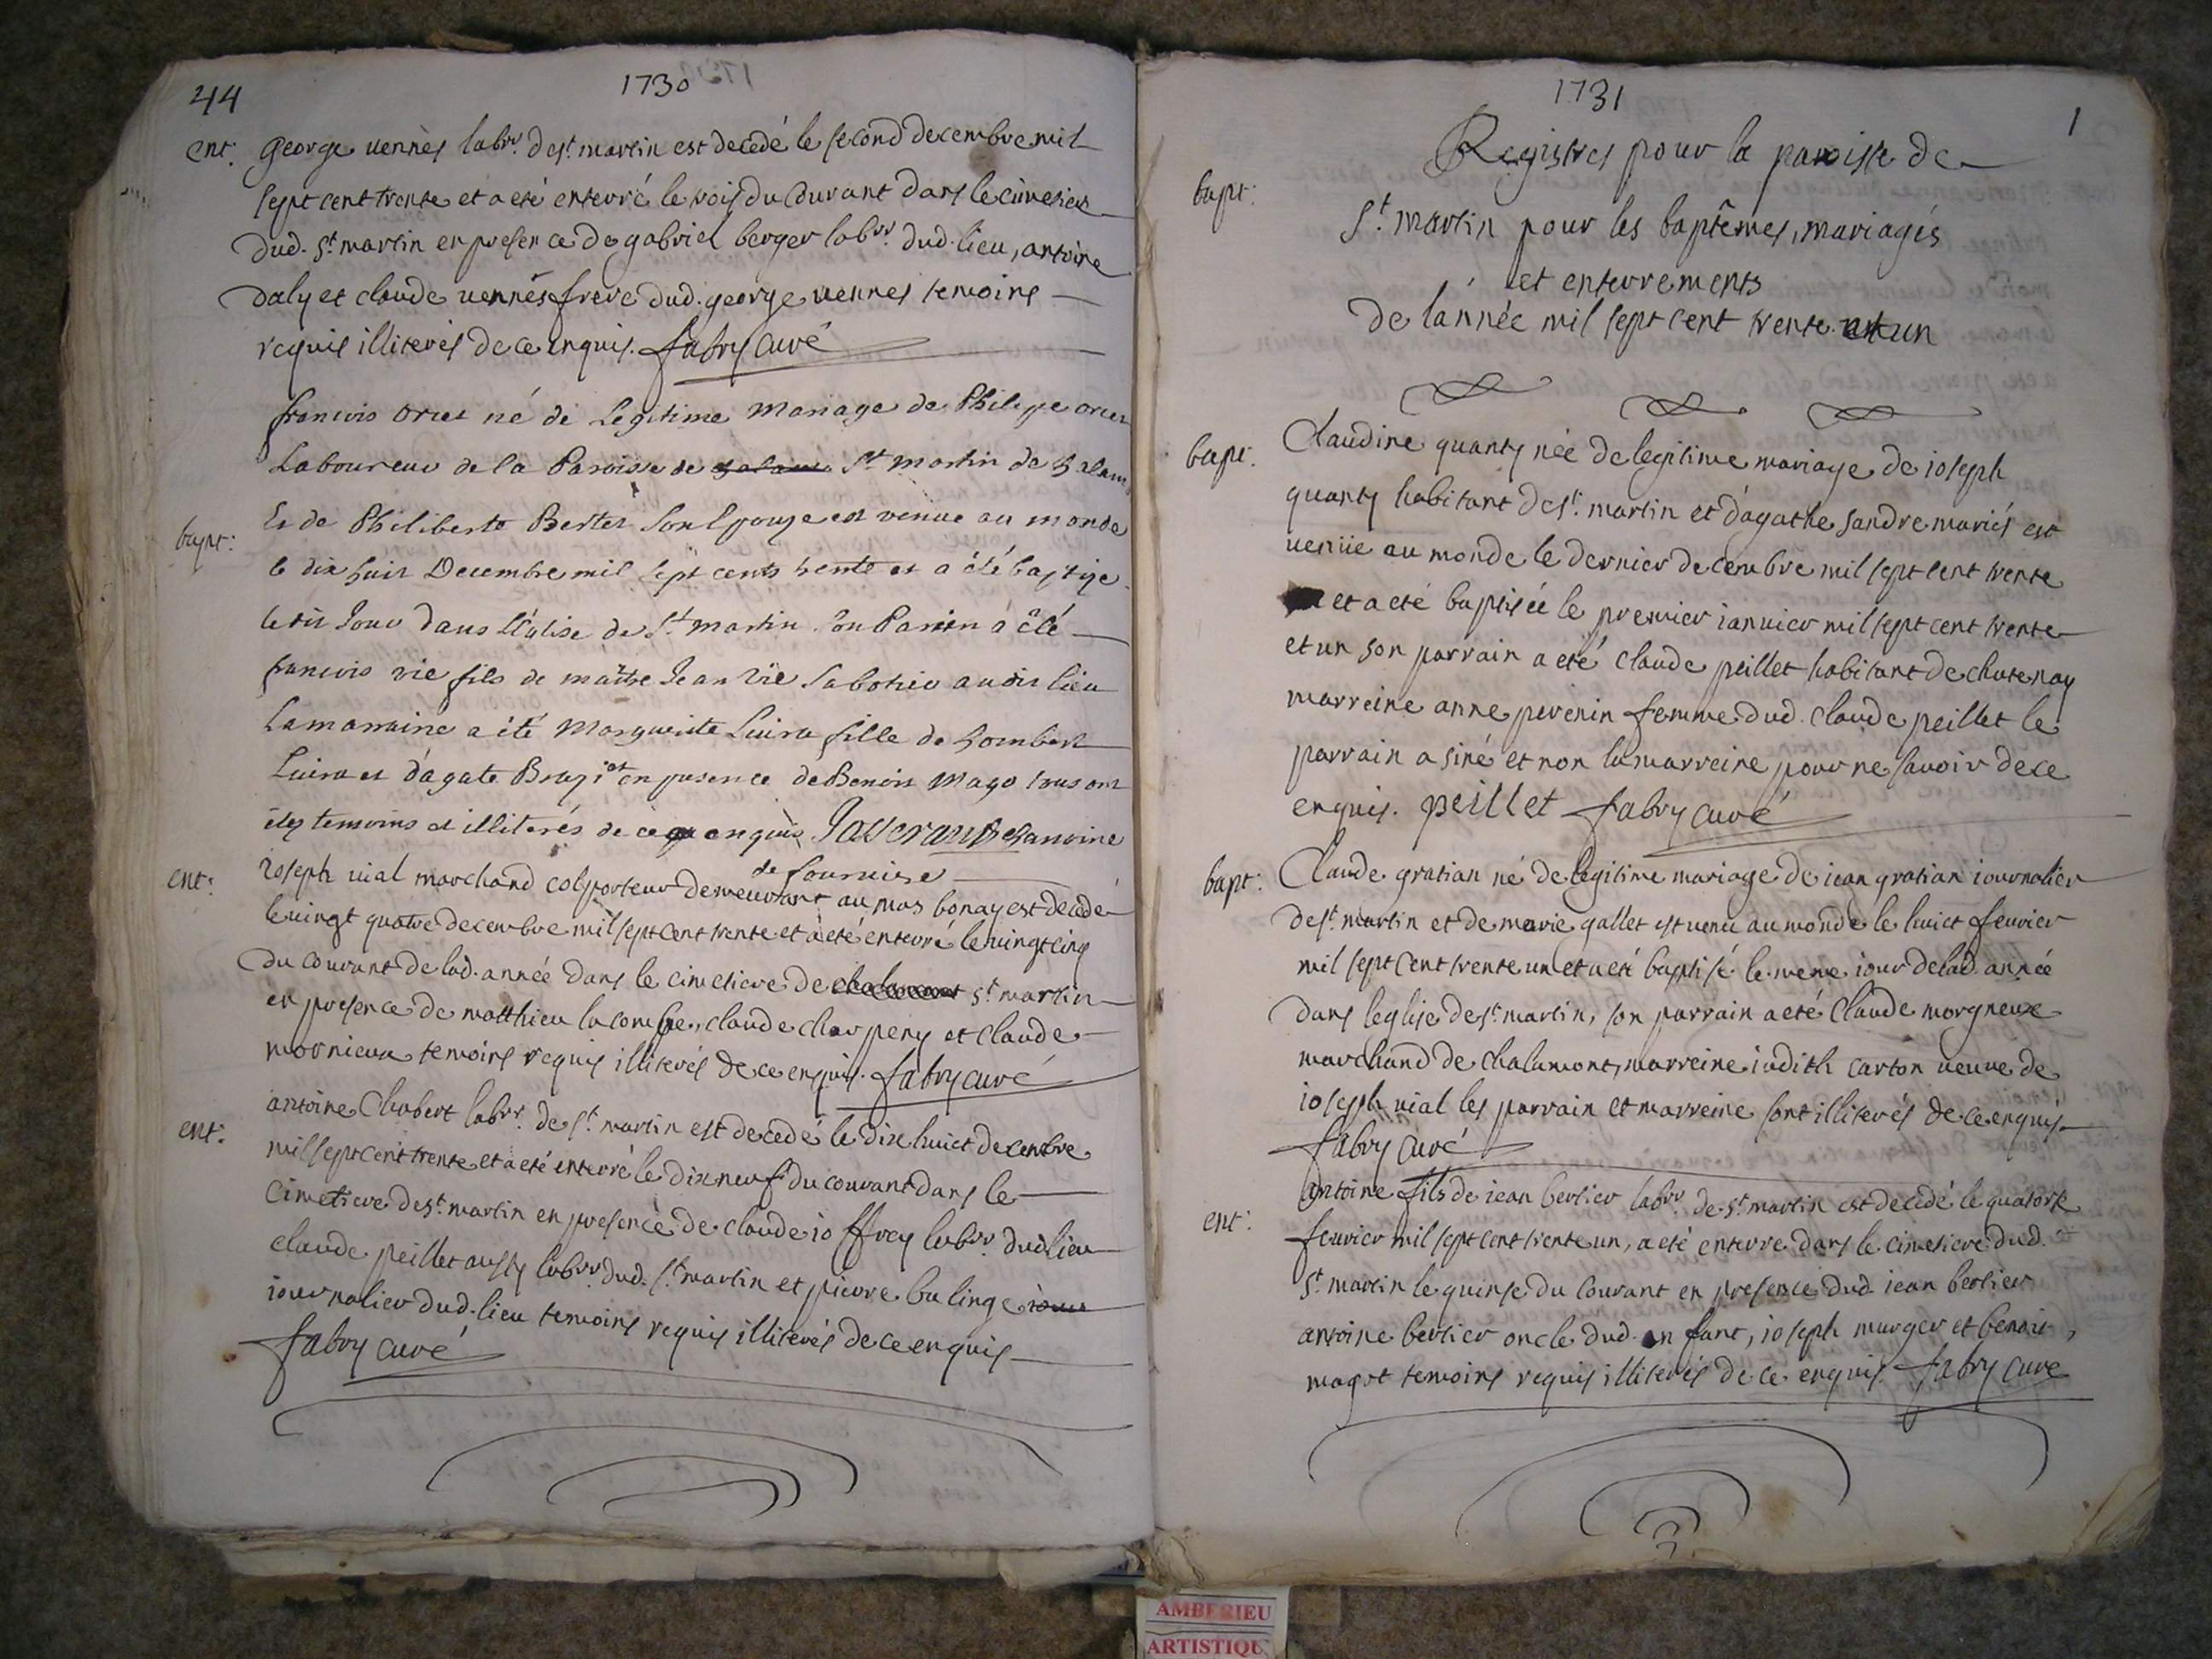 44
1730
ent: george vennes labr. de st. martin est decedé le second decembre mil
sept cent trente et a eté enterré le trois du courant dans le cimetiere
dud. st. martin en presence de gabriel berger labr. dud. lieu, antoine
daly et claude vennes frere dud. george vennes temoins
requis illiterés de ce enquis. fabry curé
francois orset né de Legitime Mariage de Philippe orset
Laboureur de la Paroisse de St Martin de
bapt: Et de Philiberte Berter son Epouze est venue au monde
le dix huit Decembre mil sept cents trente et a été baptize
le dit Jour dans L'église de St. martin son Parin a été
francois vie fils de maitre Jean vie Sabotier audit lieu
La marraine a été Marguerite Luira fille de
Luira et d'agate en presence de Benoist Mago tous ont
étez temoins et illiterés de ce enquis chanoine
de
ent: ioseph vial marchand colporteur demeurant au mas bonay est decedé
le vingt quatre decembre mil sept cent trente et a eté enterré le vingt cinq
du courant de lad. année dans le cimetiere de st. martin
en presence de matthieu la combe, claude charpeny et claude
mornieux temoins requis illiterés de ce enquis. fabry curé
ent: antoine Chabert labr. de st. martin est decedé le dix huict decembre
mil sept cent trente et a eté enterré le dix neuf du courant dans le
cimetiere de st. martin en presence de claude ioffrey labr. dud lieu
claude peillet aussy labr. dud. st. martin et pierre bulinge
iournalier dud. lieu temoins requis illiterés de ce enquis
fabry curé
1731
1
bapt: Registres pour la paroisse de
St. martin pour les baptêmes, mariages
et enterrements
de l'année mil sept cent trente et un
bapt: Claudine quanty née de legitime mariage de ioseph
quanty habitant de st. martin et d'agathe sandre mariés est
venüe au monde le dernier decembre mil sept cent trente
et a eté baptisée le premier ianvier mil sept cent trente
et un son parrain a eté claude peillet habitant de chatenay
marreine anne pevenin femme dud. claude peillet le
parrain a siné et non la marreine pour ne savoir de ce
enquis. peillet fabry curé
bapt: Claude gratian né de legitime mariage de iean gratian iournalier
de st. martin et de marie gallet est venu au monde le huict feuvier
mil sept cent trente un et a eté baptisé le meme iour de lad. année
dans leglise de st. martin, son parrain a eté Claude morgneux
marchand de chalamont, marreine iudith carton veuve de
ioseph vial les parrain et marreine sont illiterés de ce enquis
fabry curé
ent: antoine fils de iean berlier labr. de st. martin est decedé le quatorse
feuvier mil sept cent trente un, a eté enterré dans le cimetiere dud.
st. martin le quinse du courant en presence dud. iean berlier
antoine berlier oncle dud. enfant, ioseph murger et benoit
magot temoins requis illiterés de ce enquis. fabry curé
AMBERIEU
ARTISTIQU